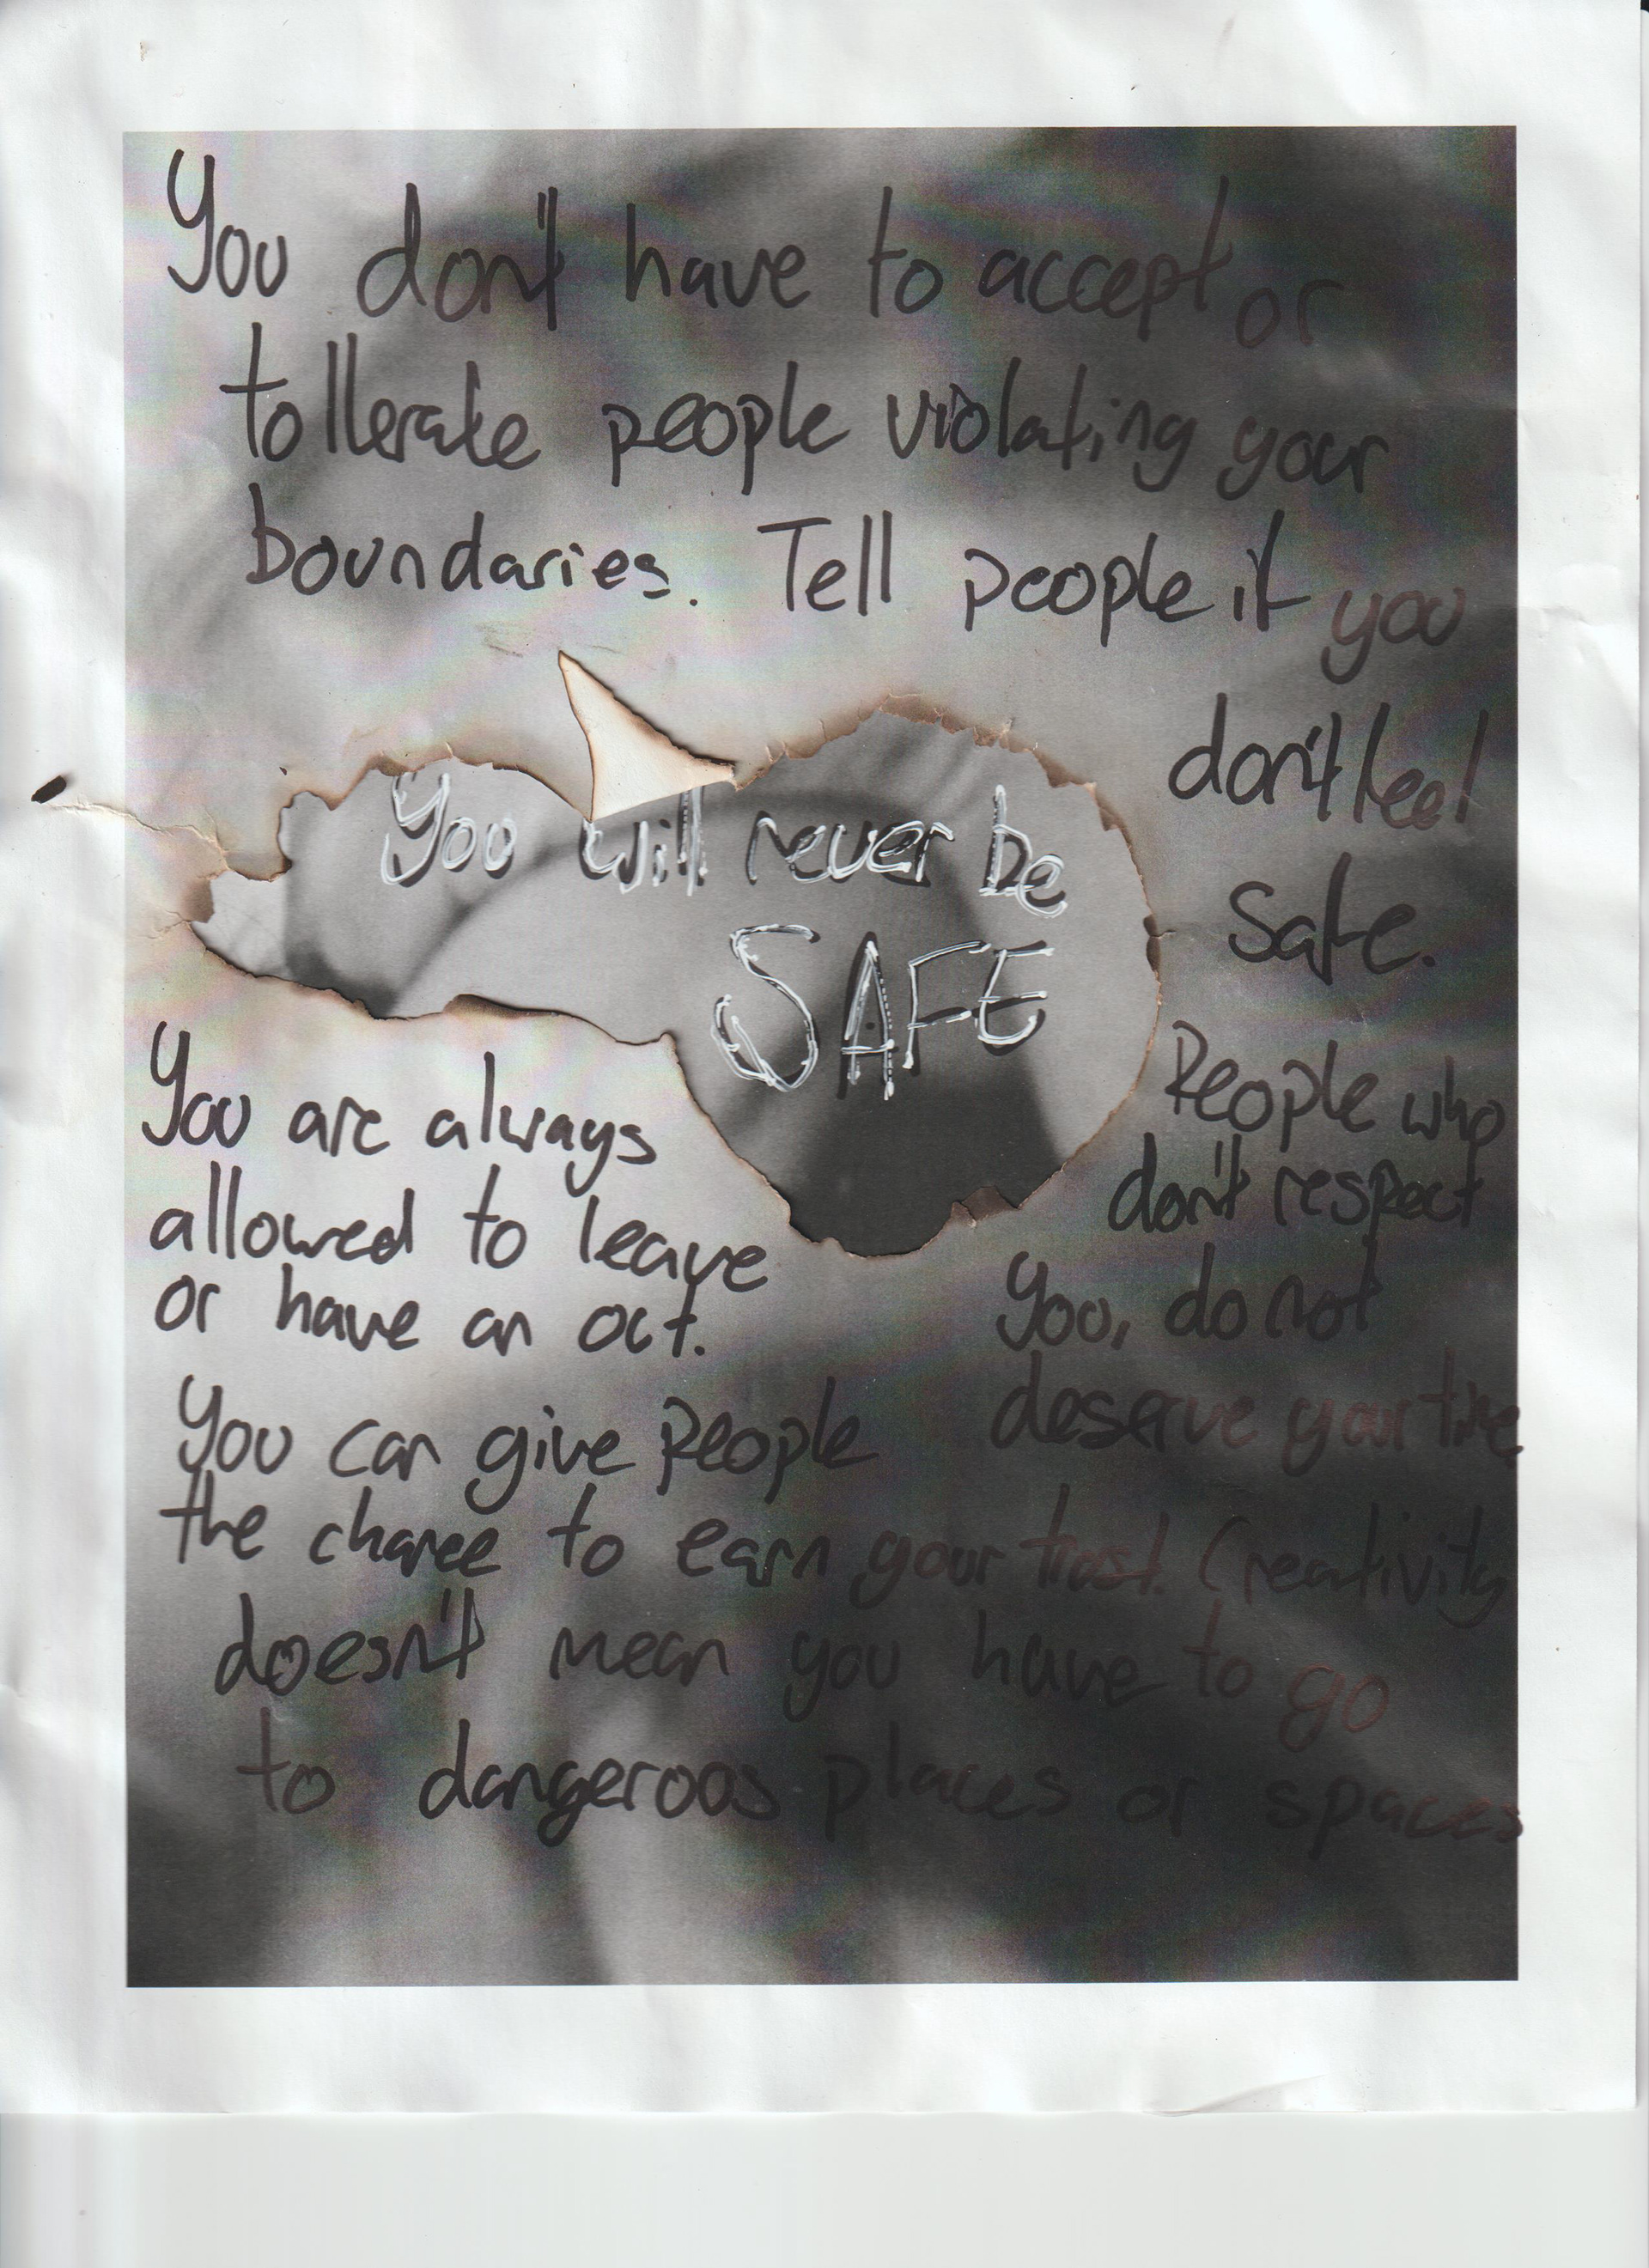 You don't have to accept or
tollerate people violating your
boundaries. Tell people if you
don't feel
safe.
You will never be
SAFE
People who
don't respect
you, do not
deserve your time
You are always
allowed to leave
or have an out.
You can give people
the chance to earn your trust. Creativity
doesn't mean you have to go
to dangeroos places or spaces